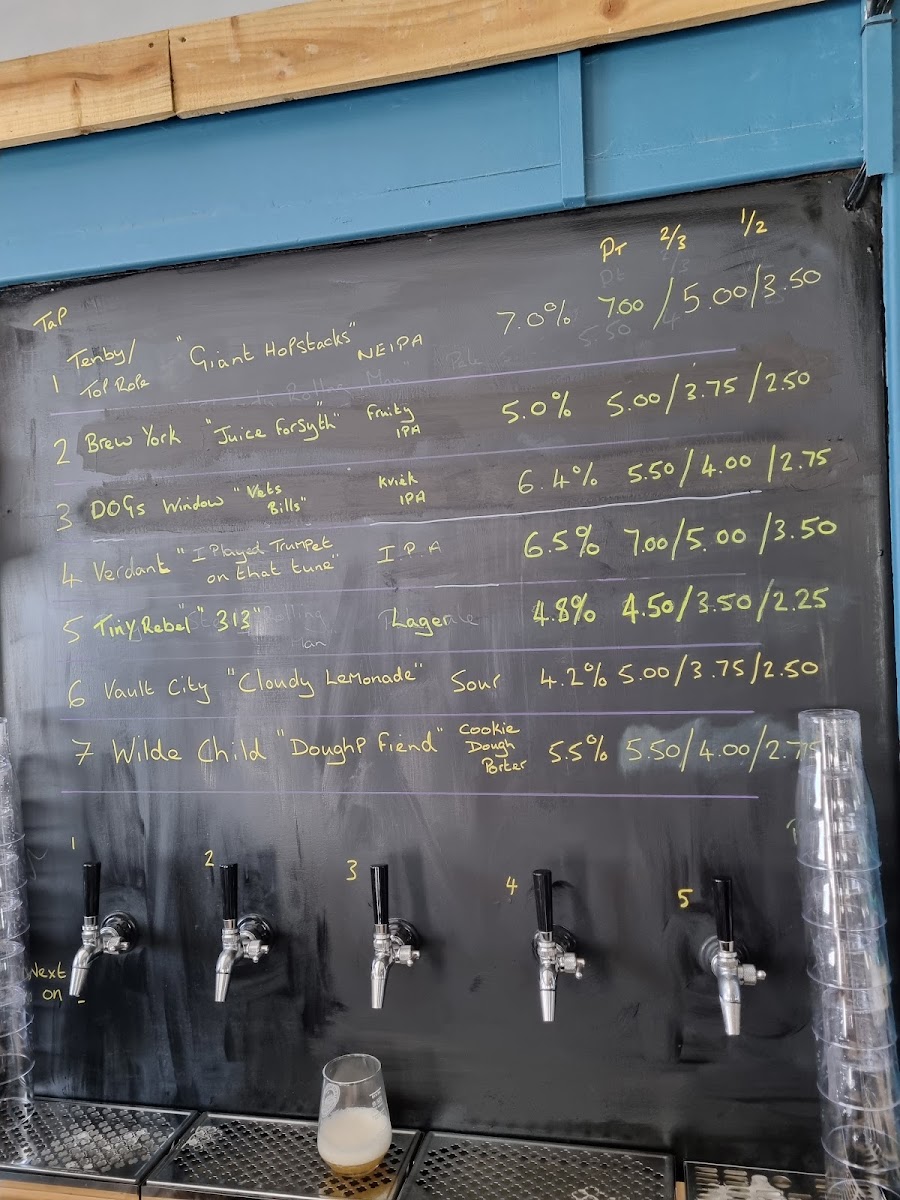 Pt 2/3 1/2
Tap
1 Tenby/ Top Rope "Giant Hopstacks" NEIPA 7.0% 7.00/5.00/3.50
2 Brew York "Juice Forsyth" Fruity IPA 5.0% 5.00/3.75/2.50
3 DOGs Window "Vets Bills" Kviek IPA 6.4% 5.50/4.00/2.75
4 Verdant "I Played Trumpet on that tune" IPA 6.5% 7.00/5.00/3.50
5 Tiny Rebel "313" Lager 4.8% 4.50/3.50/2.25
6 Vault City "Cloudy Lemonade" Sour 4.2% 5.00/3.75/2.50
7 Wilde Child "Dough? Fiend" Cookie Dough Porter 5.5% 5.50/4.00/2.75
1 2 3 4 5
Next on -